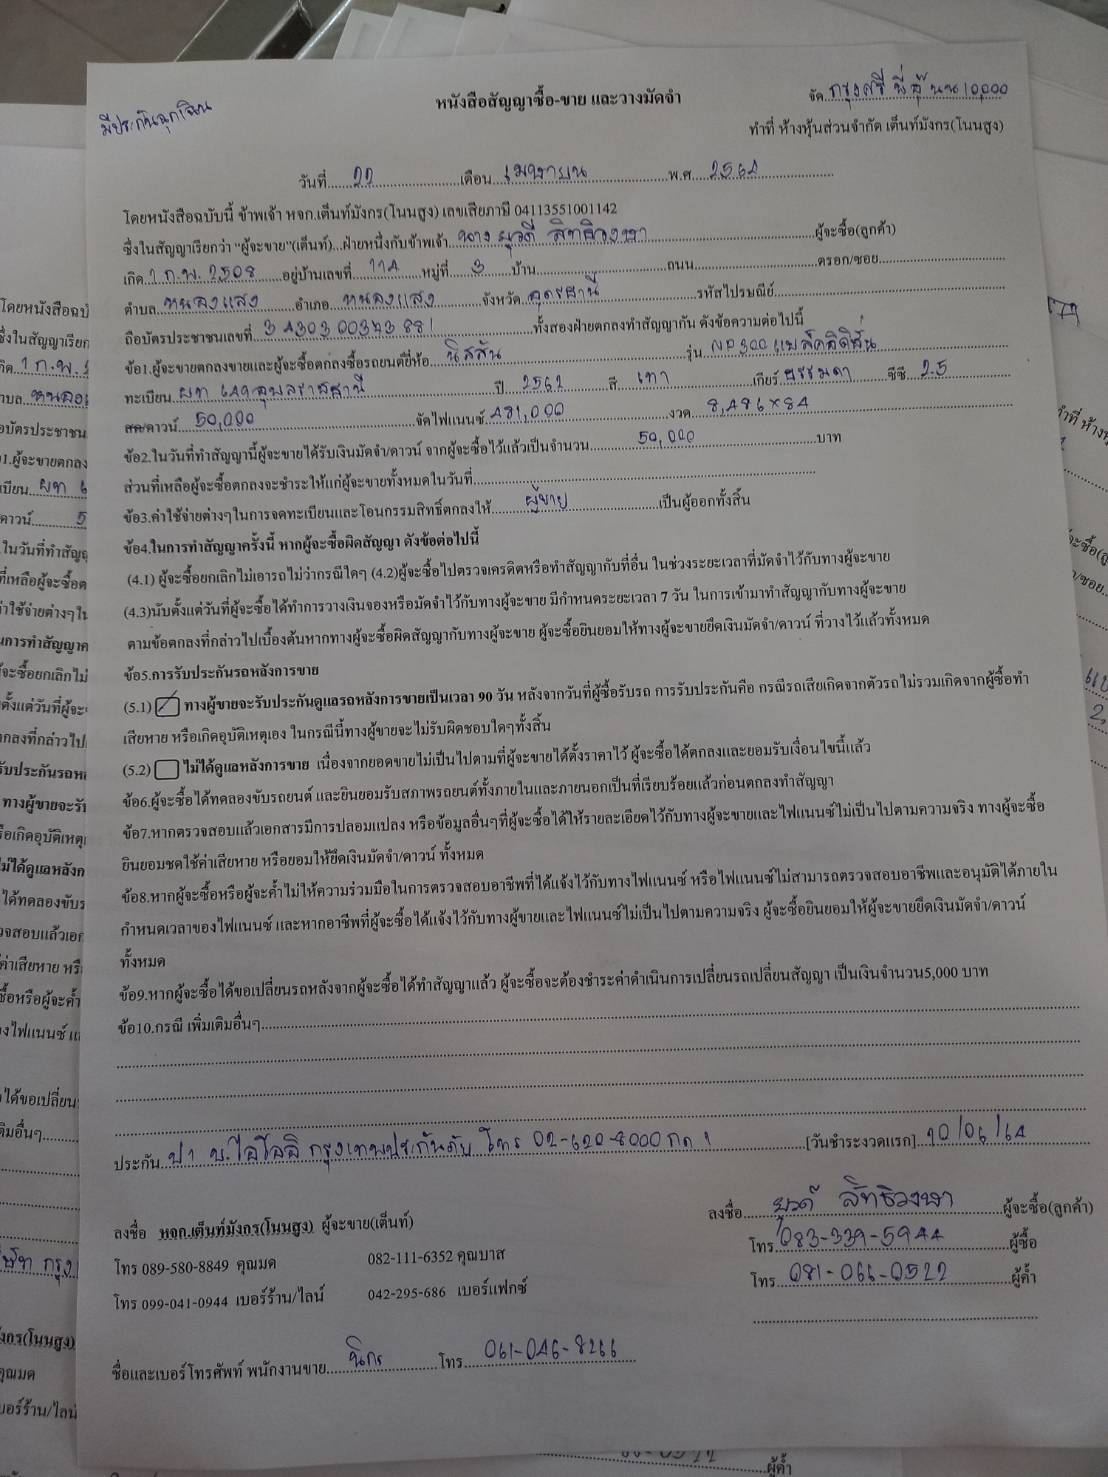 มีประกันฉุกเฉิน
หนังสือสัญญาซื้อ-ขาย และวางมัดจำ
จัด กรุงศรี
10,000
ทำที่ ห้างหุ้นส่วนจำกัด เต็นท์มังกร(โนนสูง)
วันที่ 22 เดือน เมษายน พ.ศ. 2564
โดยหนังสือฉบับนี้ ข้าพเจ้า หจก.เต็นท์มังกร(โนนสูง) เลขเสียภาษี 04113551001142
ซึ่งในสัญญาเรียกว่า "ผู้จะขาย"(เต็นท์)...ฝ่ายหนึ่งกับข้าพเจ้า นาง ยุวดี สิทธิวงษา ผู้จะซื้อ(ลูกค้า)
เกิด 1 ก.พ. 2508 อยู่บ้านเลขที่ 114 หมู่ที่ 3 บ้าน ถนน ตรอก/ซอย
ตำบล หนองแสง อำเภอ หนองแสง จังหวัด อุดรธานี รหัสไปรษณีย์
ถือบัตรประชาชนเลขที่ 3 4303 00373 88 1 ทั้งสองฝ่ายตกลงทำสัญญากัน ดังข้อความต่อไปนี้
ข้อ1.ผู้จะขายตกลงขายและผู้จะซื้อตกลงซื้อรถยนต์ยี่ห้อ นิสสัน รุ่น NP300 แบล็คอิดิสั่น
ทะเบียน ผท 649 อุบลราชธานี ปี 2562 สี เทา เกียร์ ธรรมดา ซีซี 2.5
สด/ดาวน์ 50,000 จัดไฟแนนซ์ 481,000 งวด 8,486 x 84
ข้อ2.ในวันที่ทำสัญญานี้ผู้จะขายได้รับเงินมัดจำ/ดาวน์ จากผู้จะซื้อไว้แล้วเป็นจำนวน 50,000 บาท
ส่วนที่เหลือผู้จะซื้อตกลงจะชำระให้แก่ผู้จะขายทั้งหมดในวันที่
ข้อ3.ค่าใช้จ่ายต่างๆในการจดทะเบียนและโอนกรรมสิทธิ์ตกลงให้ ผู้ขาย เป็นผู้ออกทั้งสิ้น
ข้อ4.ในการทำสัญญาครั้งนี้ หากผู้จะซื้อผิดสัญญา ดังข้อต่อไปนี้
(4.1) ผู้จะซื้อยกเลิกไม่เอารถไม่ว่ากรณีใดๆ (4.2)ผู้จะซื้อไปตรวจเครดิตหรือทำสัญญากับที่อื่น ในช่วงระยะเวลาที่มัดจำไว้กับทางผู้จะขาย
(4.3)นับตั้งแต่วันที่ผู้จะซื้อได้ทำการวางเงินจองหรือมัดจำไว้กับทางผู้จะขาย มีกำหนดระยะเวลา 7 วัน ในการเข้ามาทำสัญญากับทางผู้จะขาย
ตามข้อตกลงที่กล่าวไปเบื้องต้นหากทางผู้จะซื้อผิดสัญญากับทางผู้จะขาย ผู้จะซื้อยินยอมให้ทางผู้จะขายยึดเงินมัดจำ/ดาวน์ ที่วางไว้แล้วทั้งหมด
ข้อ5.การรับประกันรถหลังการขาย
(5.1) ทางผู้ขายจะรับประกันดูแลรถหลังการขายเป็นเวลา 90 วัน หลังจากวันที่ผู้ซื้อรับรถ การรับประกันคือ กรณีรถเสียเกิดจากตัวรถ ไม่รวมเกิดจากผู้ซื้อทำ
เสียหาย หรือเกิดอุบัติเหตุเอง ในกรณีนี้ทางผู้ขายจะไม่รับผิดชอบใดๆทั้งสิ้น
(5.2) ไม่ได้ดูแลหลังการขาย เนื่องจากยอดขายไม่เป็นไปตามที่ผู้จะขายได้ตั้งราคาไว้ ผู้จะซื้อได้ตกลงและยอมรับเงื่อนไขนี้แล้ว
ข้อ6.ผู้จะซื้อได้ทดลองขับรถยนต์ และยินยอมรับสภาพรถยนต์ทั้งภายในและภายนอกเป็นที่เรียบร้อยแล้วก่อนตกลงทำสัญญา
ข้อ7.หากตรวจสอบแล้วเอกสารมีการปลอมแปลง หรือข้อมูลอื่นๆที่ผู้จะซื้อได้ให้รายละเอียดไว้กับทางผู้จะขายและไฟแนนซ์ไม่เป็นไปตามความจริง ทางผู้จะซื้อ
ยินยอมชดใช้ค่าเสียหาย หรือยอมให้ยึดเงินมัดจำ/ดาวน์ ทั้งหมด
ข้อ8.หากผู้จะซื้อหรือผู้จะค้ำไม่ให้ความร่วมมือในการตรวจสอบอาชีพที่ได้แจ้งไว้กับทางไฟแนนซ์ หรือไฟแนนซ์ไม่สามารถตรวจสอบอาชีพและอนุมัติได้ภายใน
กำหนดเวลาของไฟแนนซ์ และหากอาชีพที่ผู้จะซื้อได้แจ้งไว้กับทางผู้ขายและไฟแนนซ์ไม่เป็นไปตามความจริง ผู้จะซื้อยินยอมให้ผู้จะขายยึดเงินมัดจำ/ดาวน์
ทั้งหมด
ข้อ9.หากผู้จะซื้อได้ขอเปลี่ยนรถหลังจากผู้จะซื้อได้ทำสัญญาแล้ว ผู้จะซื้อจะต้องชำระค่าดำเนินการเปลี่ยนรถเปลี่ยนสัญญา เป็นเงินจำนวน5,000 บาท
ข้อ10.กรณี เพิ่มเติมอื่นๆ
ประกัน ป1 บ.ไอโออิ กรุงเทพประกันภัย โทร 02-620-8000 กด 1 [วันชำระงวดแรก] 10/06/64
ลงชื่อ หจก.เต็นท์มังกร(โนนสูง) ผู้จะขาย(เต็นท์)
ลงชื่อ ยุวดี สิทธิวงษา ผู้จะซื้อ(ลูกค้า)
โทร 089-580-8849 คุณมด 082-111-6352 คุณบาส
โทร 083-339-5944 ผู้ซื้อ
โทร 099-041-0944 เบอร์ร้าน/ไลน์ 042-295-686 เบอร์แฟกซ์
โทร 081-066-0522 ผู้ค้ำ
ชื่อและเบอร์โทรศัพท์ พนักงานขาย นิกร โทร 061-046-8266